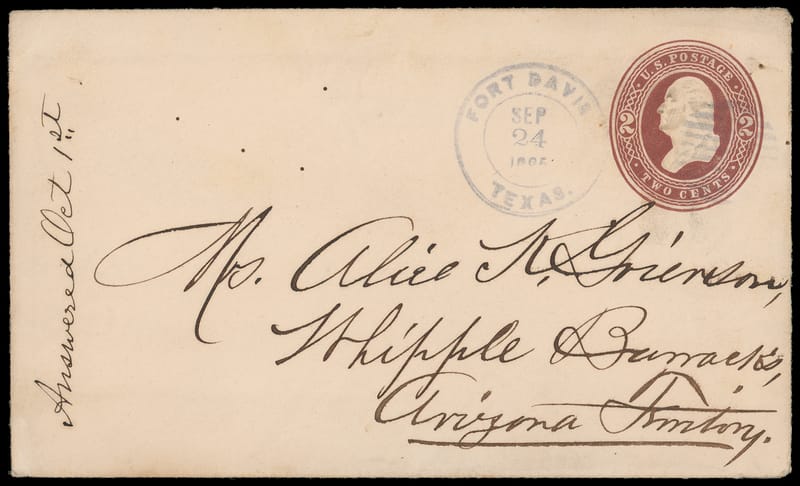 FORT DAVIS
SEP
24
TEXAS.
U.S. POSTAGE
2 2
TWO CENTS
Mrs. Alice K. Grierson,
Whipple Barracks,
Arizona Territory.
Answered Oct 1st